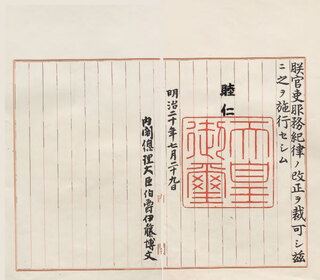 朕官吏服務紀律ノ改正ヲ裁可シ茲
ニ之ヲ施行セシム
睦仁
天皇御璽
明治二十年七月二十九日
内閣總理大臣伯爵伊藤博文